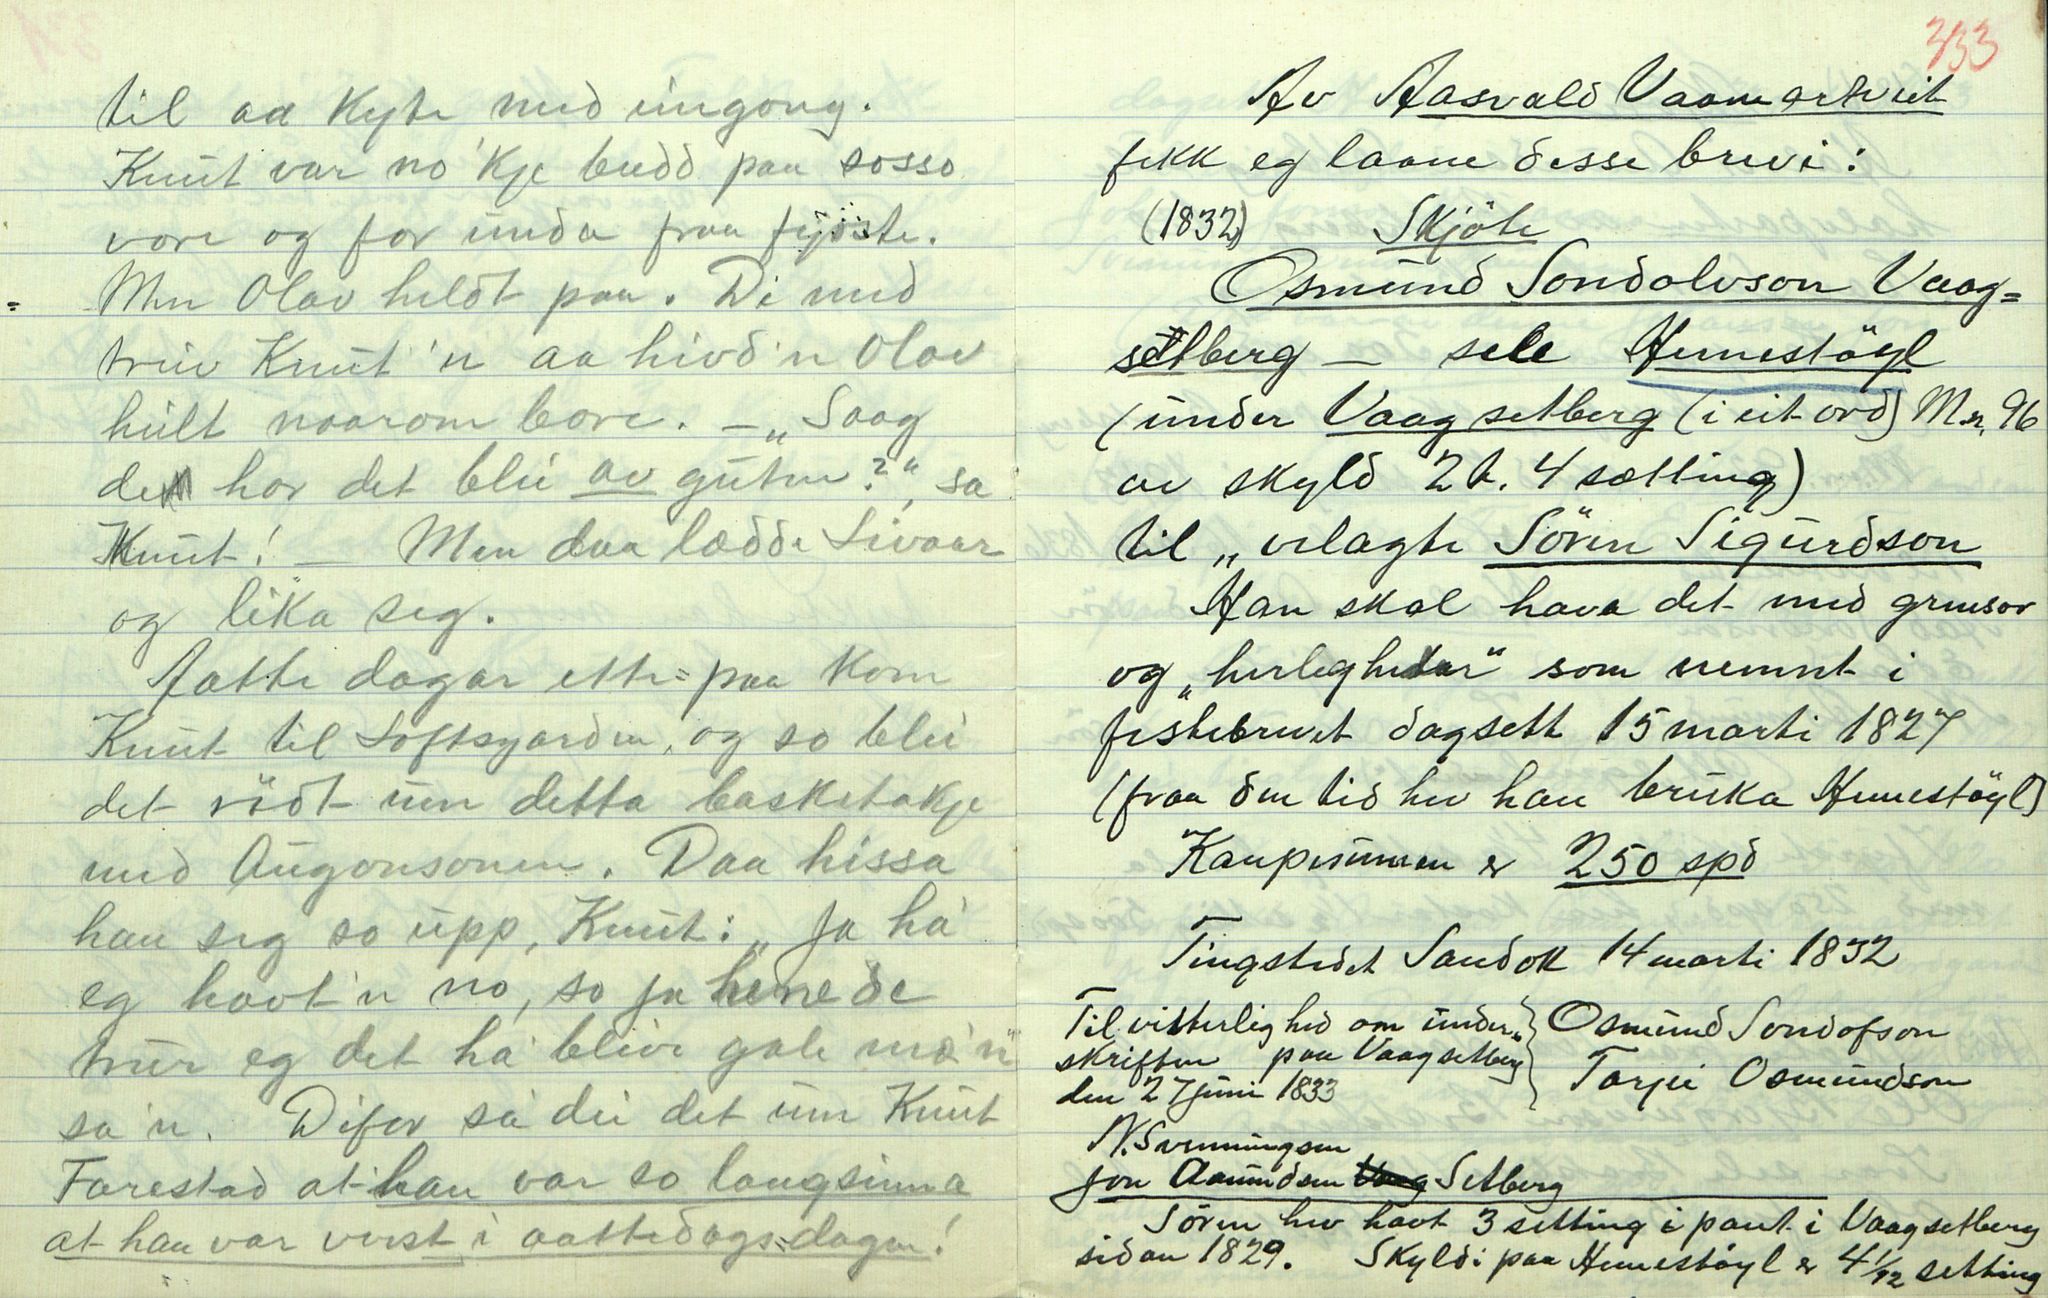 til aa kyte med eingong.
Knut var no 'kje budd paa sosso
vore og for unda fraa fyöste.
Men Olav heldt paa. Di med
treiv Knut 'n aa hivd 'n Olav
hült naarom bore. — „Saag
de hor det blei av guten?“, sa
Knut! — Men daa lædde Sivaar
og lika seg.
Aatte dagar ette-paa kom
Knut til Loftsgarden, og so blei
det rödt um detta basketakje
med Augonsonen. Daa hissa
han seg so upp, Knut: „Ja ha
eg havt 'n no, so ja henede
trur eg det ha blive gale mæ 'n“
sa 'n. Difor sa dei det um Knut
Farestad at han var so langsinna
at han var verst i aattedags-dagen!
333
Av Aasvald Vaamartveit
fekk eg laane desse brevi:
(1832) Skjöte
Osmund Sondolvson Vaag=
setberg — sele Hemestöyl
(under Vaagsetberg (i eit ord) M.n. 96
av skyld 2 h. 4 sætting)
til „velagte Sören Sigurdson
Han skal hava det med grensor
og „herligheder“ som nemnt i
festebrevet dagsett 15 marti 1827
(fraa den tid hev han bruka Hemestöyl)
Kaupesummen er 250 spd
Tingstedet Sandok 14 marti 1832
Til vitterlighed om under-
skriften paa Vaagsetberg
den 27 juni 1833
Osmund Sondofson
Torjei Osmundson
N. Svenningsen
Jon Aamundsen Setberg
Sören hev havt 3 setting i pant i Vaagsetberg
sidan 1829. Skyldi paa Hemestöyl er 4 1/12 setting